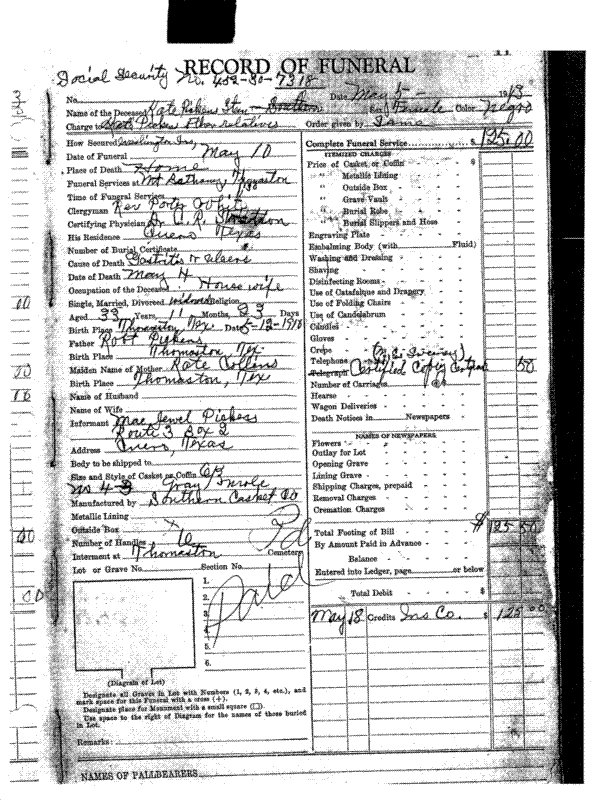 RECORD OF FUNERAL
Social Security No. 452-30-7318
No. Date May 5- 1943
Name of the Deceased Kate Pickens Sex Female Color Negro
Charge to Root Pickens other relatives Order given by Same
How Secured Washington Ins.
Date of Funeral May 10
Place of Death Home
Funeral Services at Mt Bethany Thomaston
Time of Funeral Services
Clergyman Rev Porter White
Certifying Physician Dr
His Residence Cuero Texas
Number of Burial Certificate
Cause of Death Gastritis + Ulcers
Date of Death May 4
Occupation of the Deceased House wife
Single, Married, Divorced widow Religion
Aged 33 Years, 11 Months, 23 Days
Birth Place Thomaston, Tex. Date 5-12-1910
Father Root Pickens
Birth Place Thomaston, Tex.
Maiden Name of Mother Kate Collins
Birth Place Thomaston, Tex
Name of Husband
Name of Wife
Informant Mae Jewel Pickens
Route 3 Box 2
Address Cuero, Texas
Body to be shipped to
Size and Style of Casket or Coffin 6/3
No 4-3
Manufactured by Southern Casket Co
Metallic Lining
Outside Box
Number of Handles 6
Interment at Thomaston Cemetery
Lot or Grave No. Section No.
1.
2.
3.
4.
5.
6.
Pd
Paid
(Diagram of Lot)
Designate all Graves in Lot with Numbers (1, 2, 3, 4, etc.), and
mark space for this Funeral with a cross (+).
Designate place for Monument with a small square (□).
Use space to the right of Diagram for the names of those buried
in Lot.
Remarks:
NAMES OF PALLBEARERS
Complete Funeral Service $ 125.00
ITEMIZED CHARGES
Price of Casket or Coffin $
" Metallic Lining
" Outside Box
" Grave Vault
" Burial Robe
" Burial Slippers and Hose
Engraving Plate
Embalming Body (with Fluid)
Washing and Dressing
Shaving
Disinfecting Rooms
Use of Catafalque and Drapery
Use of Folding Chairs
Use of Candelabrum
Candles
Gloves
Crepe
Telephone
Telegraph Certified Copy 50
Number of Carriages
Hearse
Wagon Deliveries
Death Notices in Newspapers
NAMES OF NEWSPAPERS
Flowers
Outlay for Lot
Opening Grave
Lining Grave
Shipping Charges, prepaid
Removal Charges
Cremation Charges
Total Footing of Bill $ 125 50
By Amount Paid in Advance
Balance
Entered into Ledger, page or below
Total Debit $
May 18 Credits Ins Co. $ 125 00